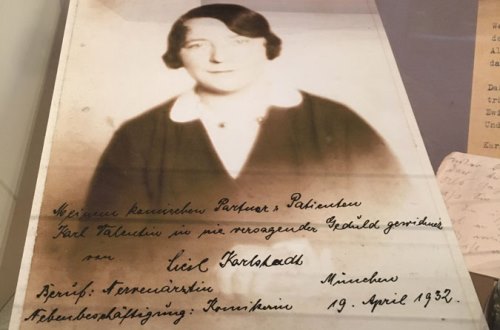 Meinem komischen Partner & Patienten
Karl Valentin in nie versagender Geduld gewidmet
von Liesl Karlstadt
Beruf: Nervenärztin München
Nebenbeschäftigung: Komikerin 19. April 1932.